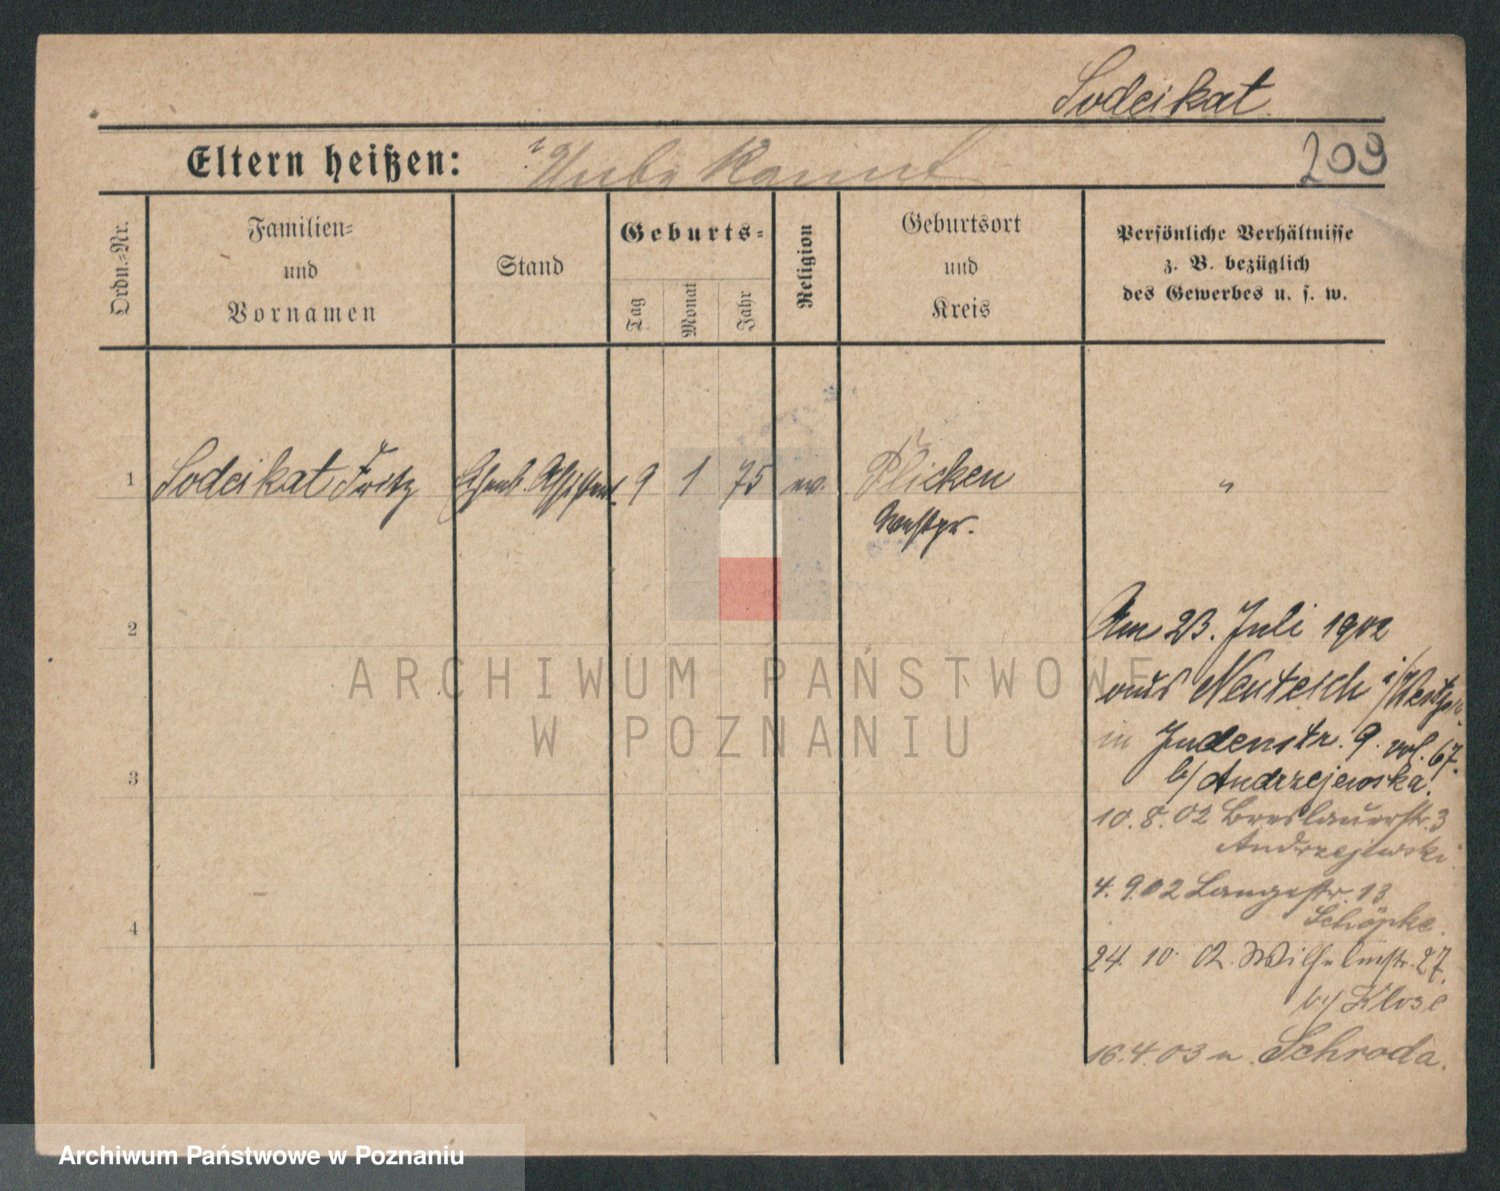 Sodeikat.
Eltern heißen: Unbekannt
209
Ordn.-Nr.
Familien-
und
Vornamen
Stand
Geburts-
Tag
Monat
Jahr
Religion
Geburtsort
und
Kreis
Persönliche Verhältnisse
z. B. bezüglich
des Gewerbes u. s. w.
1 Sodeikat Fritz 9 1 75 ev. Plicken "
Westpr.
2
3
4
Am 23. Juli 1902
aus Neuteich i/Westpr.
in Judenstr. 9. 67.
b/ Andrzejewska.
10.8.02 Breslauerstr. 3
Andrzejewski
4.9.02 Langestr. 13
Schöpke.
24. 10. 02. Wilhelmstr. 27.
b/ Klose
16.4.03 n. Schroda.
ARCHIWUM PAŃSTWOWE
W POZNANIU
Archiwum Państwowe w Poznaniu